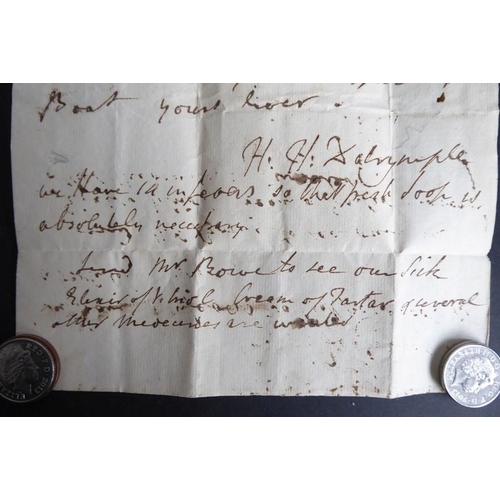 Boat yours ever.
H. H. Dalrymple
we have 12 in fevers so that fresh soop is
absolutely necessary
send Mr. Rowe to see our Sick
Elixir of Vitriol Cream of Tartar & several
other Medecines are wanted